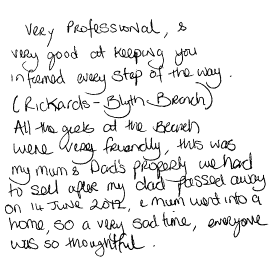 Very Professional, &
very good at keeping you
informed every step of the way.
(Rickards - Blyth Branch)
All the girls at the Branch
were very friendly, this was
my mum & Dad's property we had
to sell after my dad passed away
on 14 June 2017, & mum went into a
home, so a very sad time, everyone
was so thoughtful.